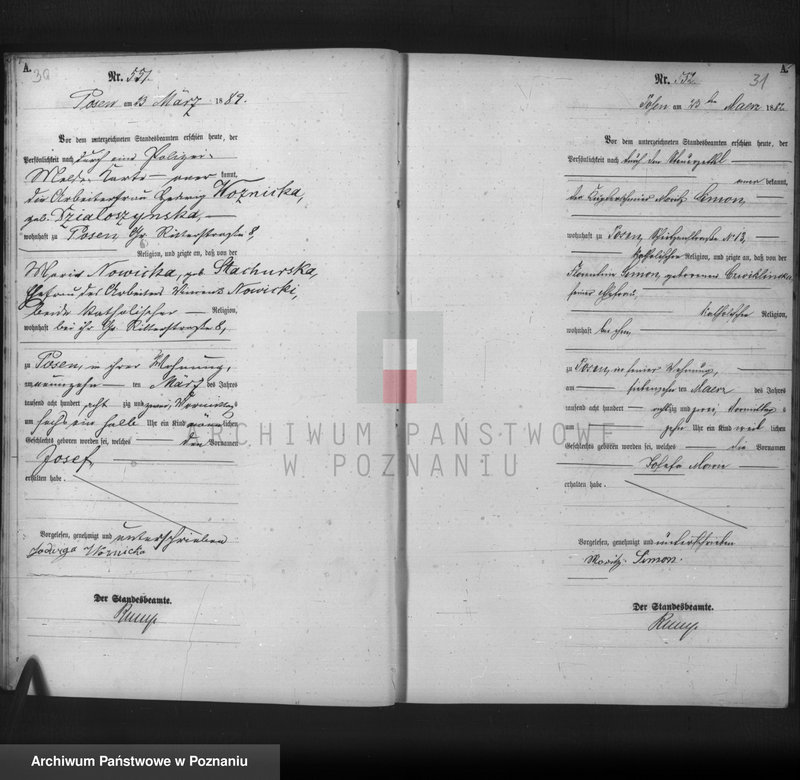 A.
30
Nr. 551.
Posen am 23 März 1882.
Vor dem unterzeichneten Standesbeamten erschien heute, der
Persönlichkeit nach durch eine Polizei
Melde Karte — aner kannt,
die Arbeiterfrau Hedwig Woznicka,
geb. Dzialoszynska, —
wohnhaft zu Posen, Gr. Ritterstraße 8,
Religion, und zeigte an, daß von der
Maria Nowicka, geb. Stachurska,
Ehefrau des Arbeiters Vincent Nowicki,
beide katholischer — Religion,
wohnhaft bei ihr Gr. Ritterstraße 8,
zu Posen, in ihrer Wohnung,
am neunzehn — ten März des Jahres
tausend acht hundert acht zig und zwei, Vormittags
um sechs ein halb Uhr ein Kind männlichen
Geschlechts geboren worden sei, welches — den Vornamen
Josef
erhalten habe.
Vorgelesen, genehmigt und unterschrieben
Jadwiga Woznicka
Der Standesbeamte.
A.
31
Nr. 552.
Posen am 23 ten Maerz 1882
Vor dem unterzeichneten Standesbeamten erschien heute, der
Persönlichkeit nach durch den Steuerzettel
aner kannt,
der Moritz Simon,
wohnhaft zu Posen, Schützenstraße No 13,
katholischer Religion, und zeigte an, daß von der
Florentine Simon, geborenen
seiner Ehefrau,
katholischer Religion,
wohnhaft bei ihm
zu Posen, in seiner Wohnung,
am — ten Maerz des Jahres
tausend acht hundert achtzig und zwei, Vormittags
um — Uhr ein Kind weib lichen
Geschlechts geboren worden sei, welches — die Vornamen
erhalten habe.
Vorgelesen, genehmigt und unterschrieben
Moritz Simon.
Der Standesbeamte.
ARCHIWUM PAŃSTWOWE
W POZNANIU
Archiwum Państwowe w Poznaniu